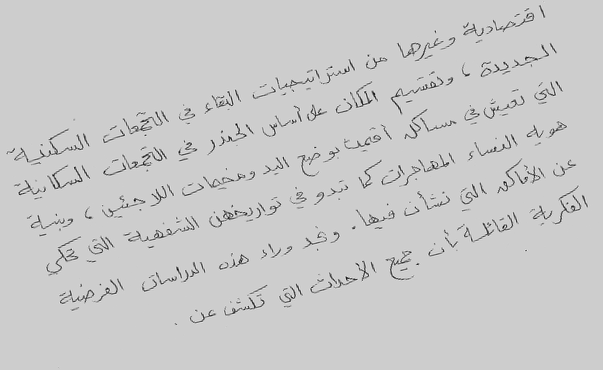 اقتصادية وغيرها من استراتيجيات البقاء في التجمعات السكنية
الجديدة ، وتقسيم المكان على أساس الجندر في التجمعات السكانية
التي تعيش في مساكن أقيمت بوضع اليد ومخيمات اللاجئين ، وبنية
هوية النساء المهاجرات كما تبدو في تواريخهن الشفهية التي تحكي
عن الأماكن التي نشأن فيها . ونجد وراء هذه الدراسات الفرضية
الفكرية القائلة بأن جميع الأحداث التي تكشف عن .